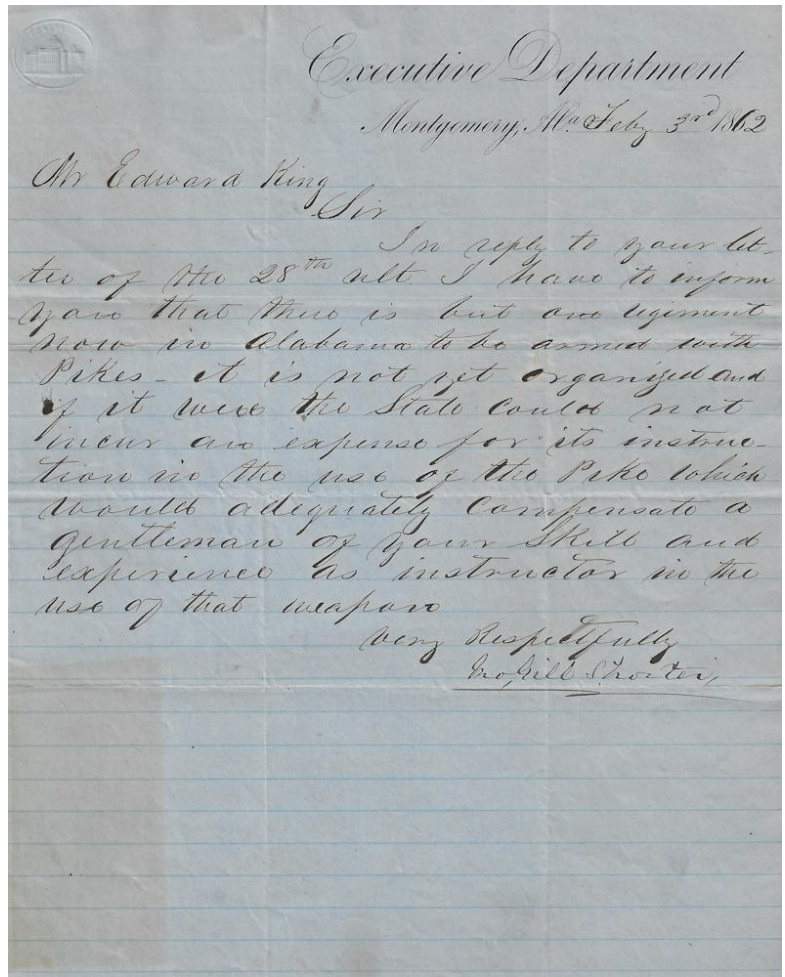 Executive Department
Montgomery, Ala. Feby 3rd 1862
Mr Edward King
Sir
In reply to your let-
ter of the 28th ult. I have to inform
you that there is but one regiment
now in Alabama to be armed with
Pikes - it is not yet organized and
if it were the State could not
incur an expense for its instruc-
tion in the use of the Pike which
would adequately compensate a
gentleman of your Skill and
experience as instructor in the
use of that weapon
Very Respectfully
Jno, Gill Shorter,